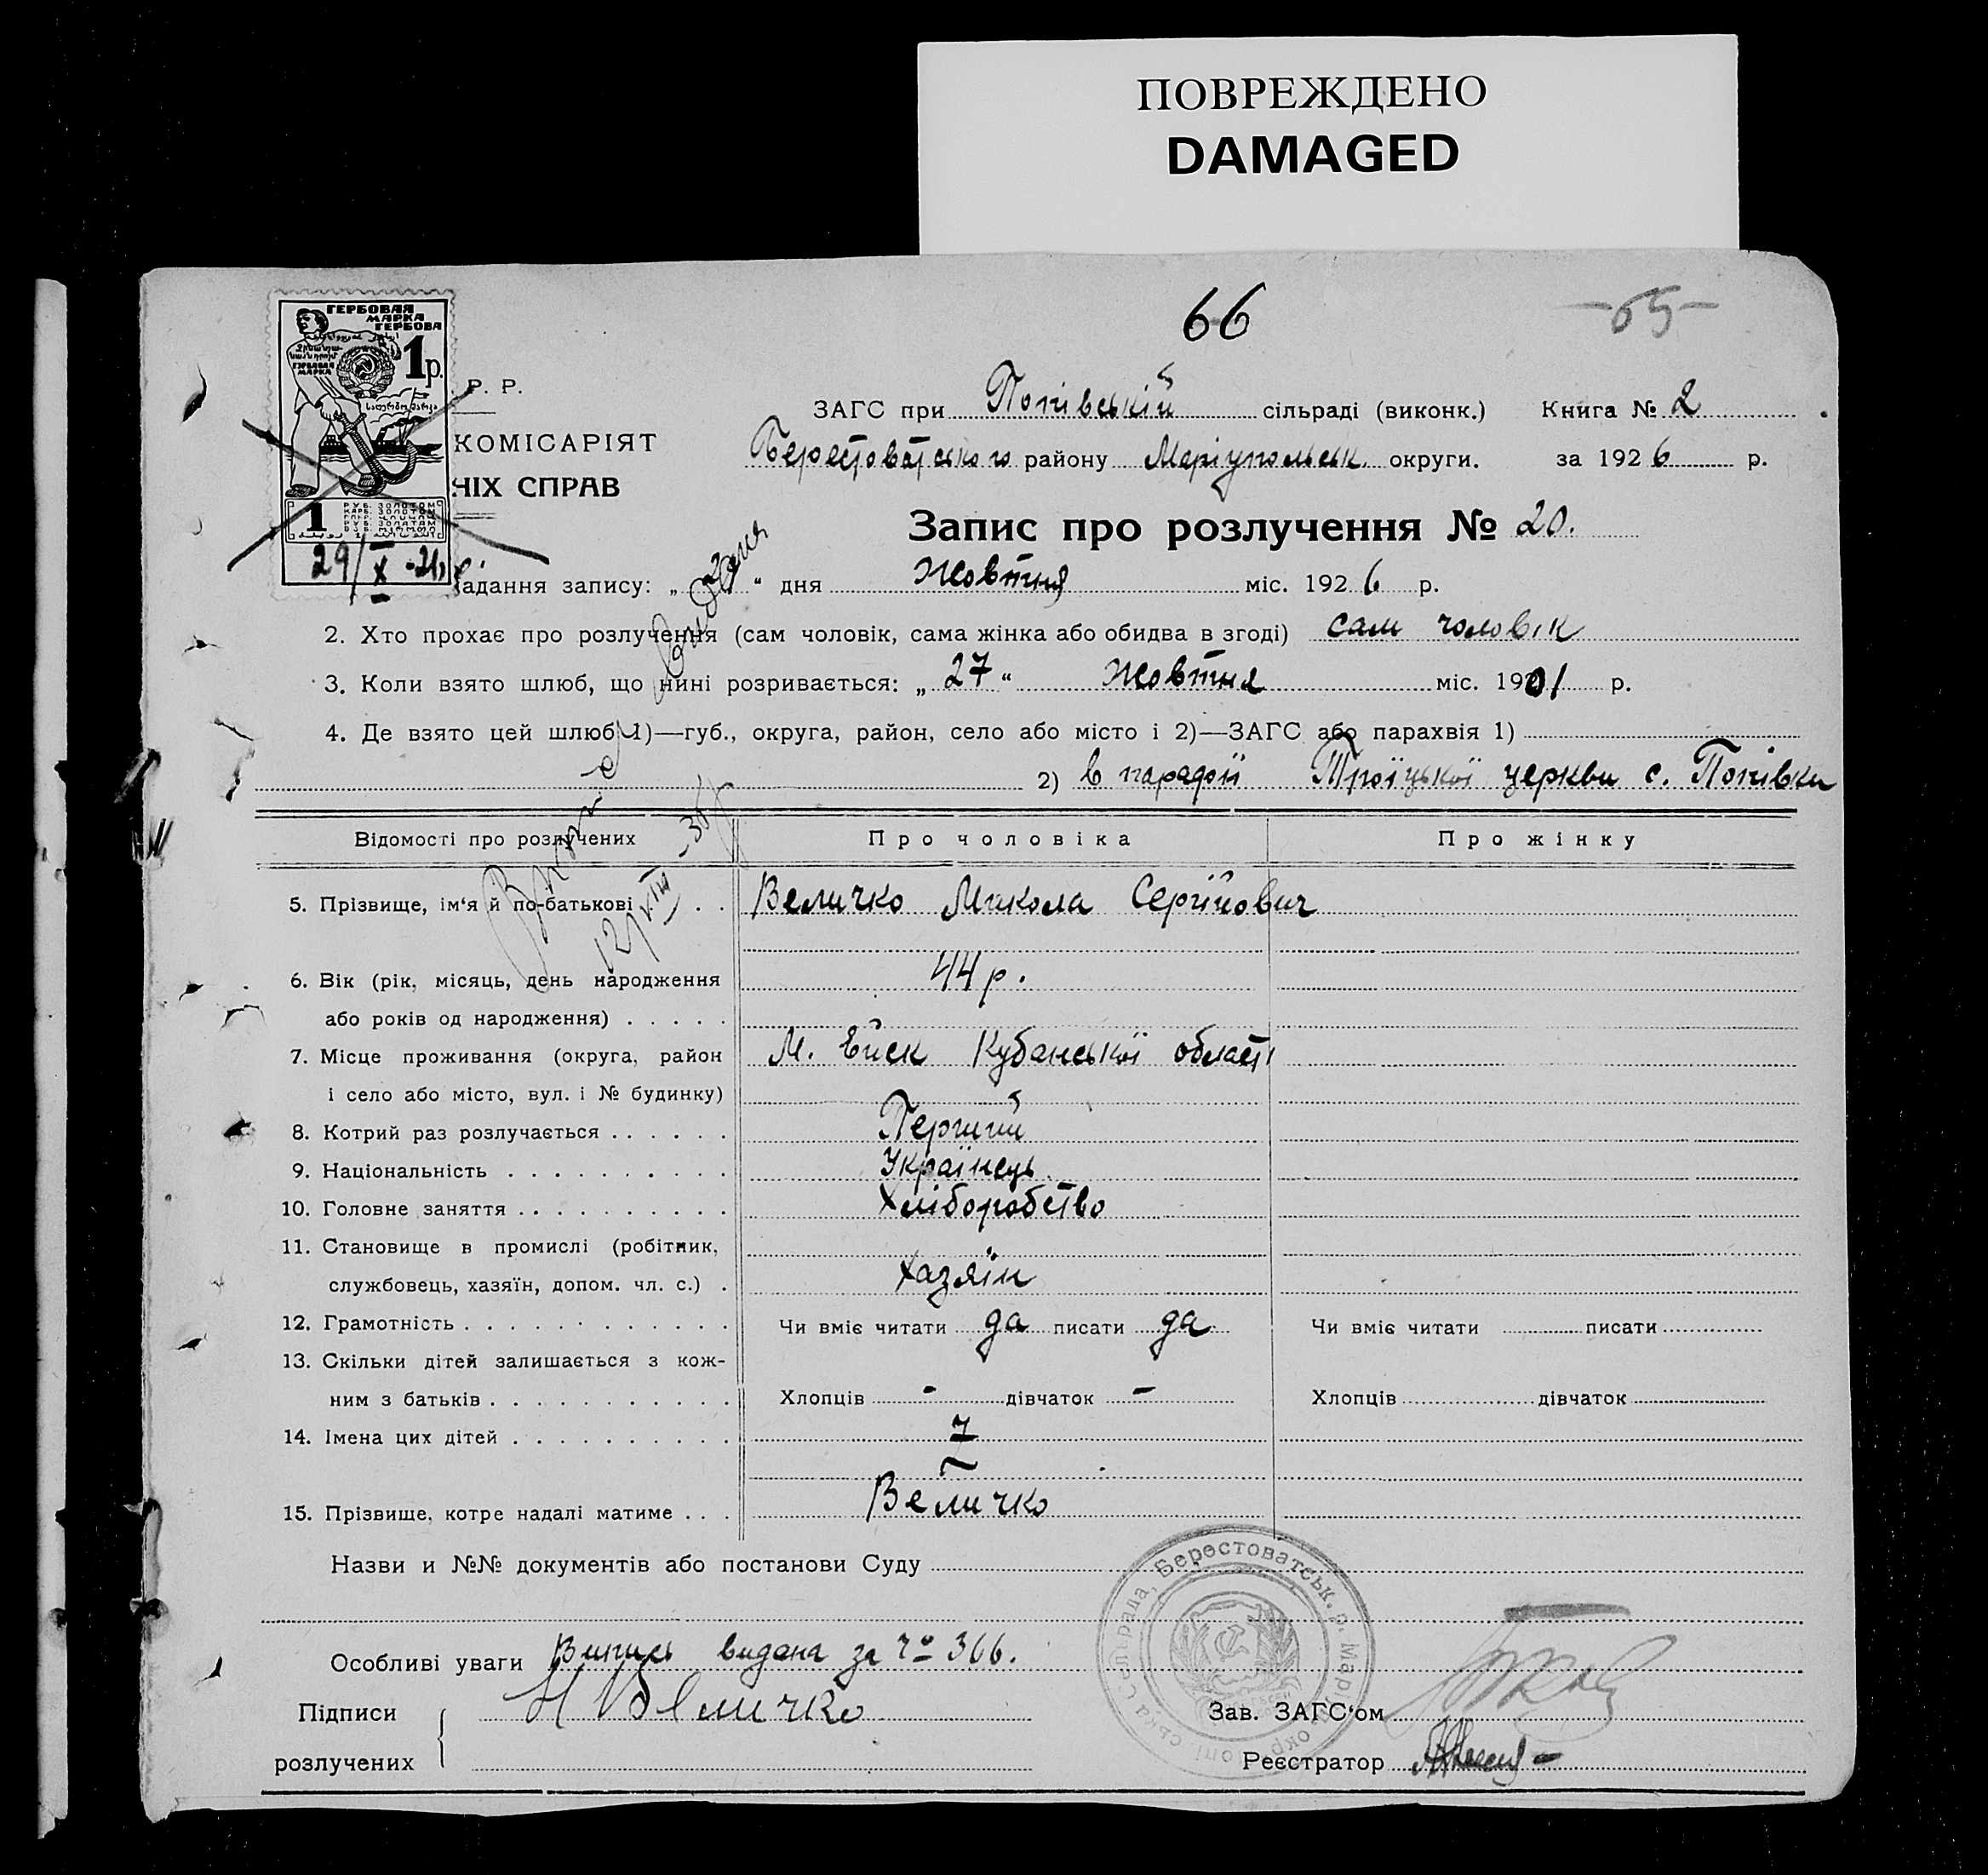 ПОВРЕЖДЕНО
DAMAGED
66
-65-
ГЕРБОВАЯ
МАРКА
ГЕРБОВА
1р.
1
29/X-26
. Р. Р.
КОМІСАРІЯТ
НІХ СПРАВ
ЗАГС при Попівській сільраді (виконк.) Книга № 2
Берестоватського району Маріупольськ. округи. за 1926 р.
Запис про розлучення № 20.
адання запису: „29“ дня Жовтня міс. 1926 р.
2. Хто прохає про розлучення (сам чоловік, сама жінка або обидва в згоді) сам чоловік
3. Коли взято шлюб, що нині розривається: „27“ Жовтня міс. 1901 р.
4. Де взято цей шлюб 1)—губ., округа, район, село або місто і 2)—ЗАГС або парахвія 1)
2) в парафії Троїцької церкви с. Попівки
Відомості про розлучених Про чоловіка Про жінку
5. Прізвище, ім‘я й по-батькові . . Величко Микола Сергійович
6. Вік (рік, місяць, день народження 44 р.
або років од народження) . . . . .
7. Місце проживання (округа, район М. Ейск Кубанської області
і село або місто, вул. і № будинку)
8. Котрий раз розлучається . . . . . . Перший
9. Національність . . . . . . . . . . Українець
10. Головне заняття . . . . . . . . . . Хліборобство
11. Становище в промислі (робітник,
службовець, хазяїн, допом. чл. с.) . Хазяїн
12. Грамотність . . . . . . . . . . . . Чи вміє читати да писати да Чи вміє читати писати
13. Скільки дітей залишається з кож-
ним з батьків . . . . . . . . . . . Хлопців - дівчаток - Хлопців дівчаток
14. Імена цих дітей . . . . . . . . . .
15. Прізвище, котре надалі матиме . . . Величко
Назви и №№ документів або постанови Суду
Особливі уваги Випись видана за № 366.
Підписи Н Величко Зав. ЗАГС‘ом
розлучених Реєстратор
Берестоватськ. р. Маріуп. окр. Попівська Сільрада,